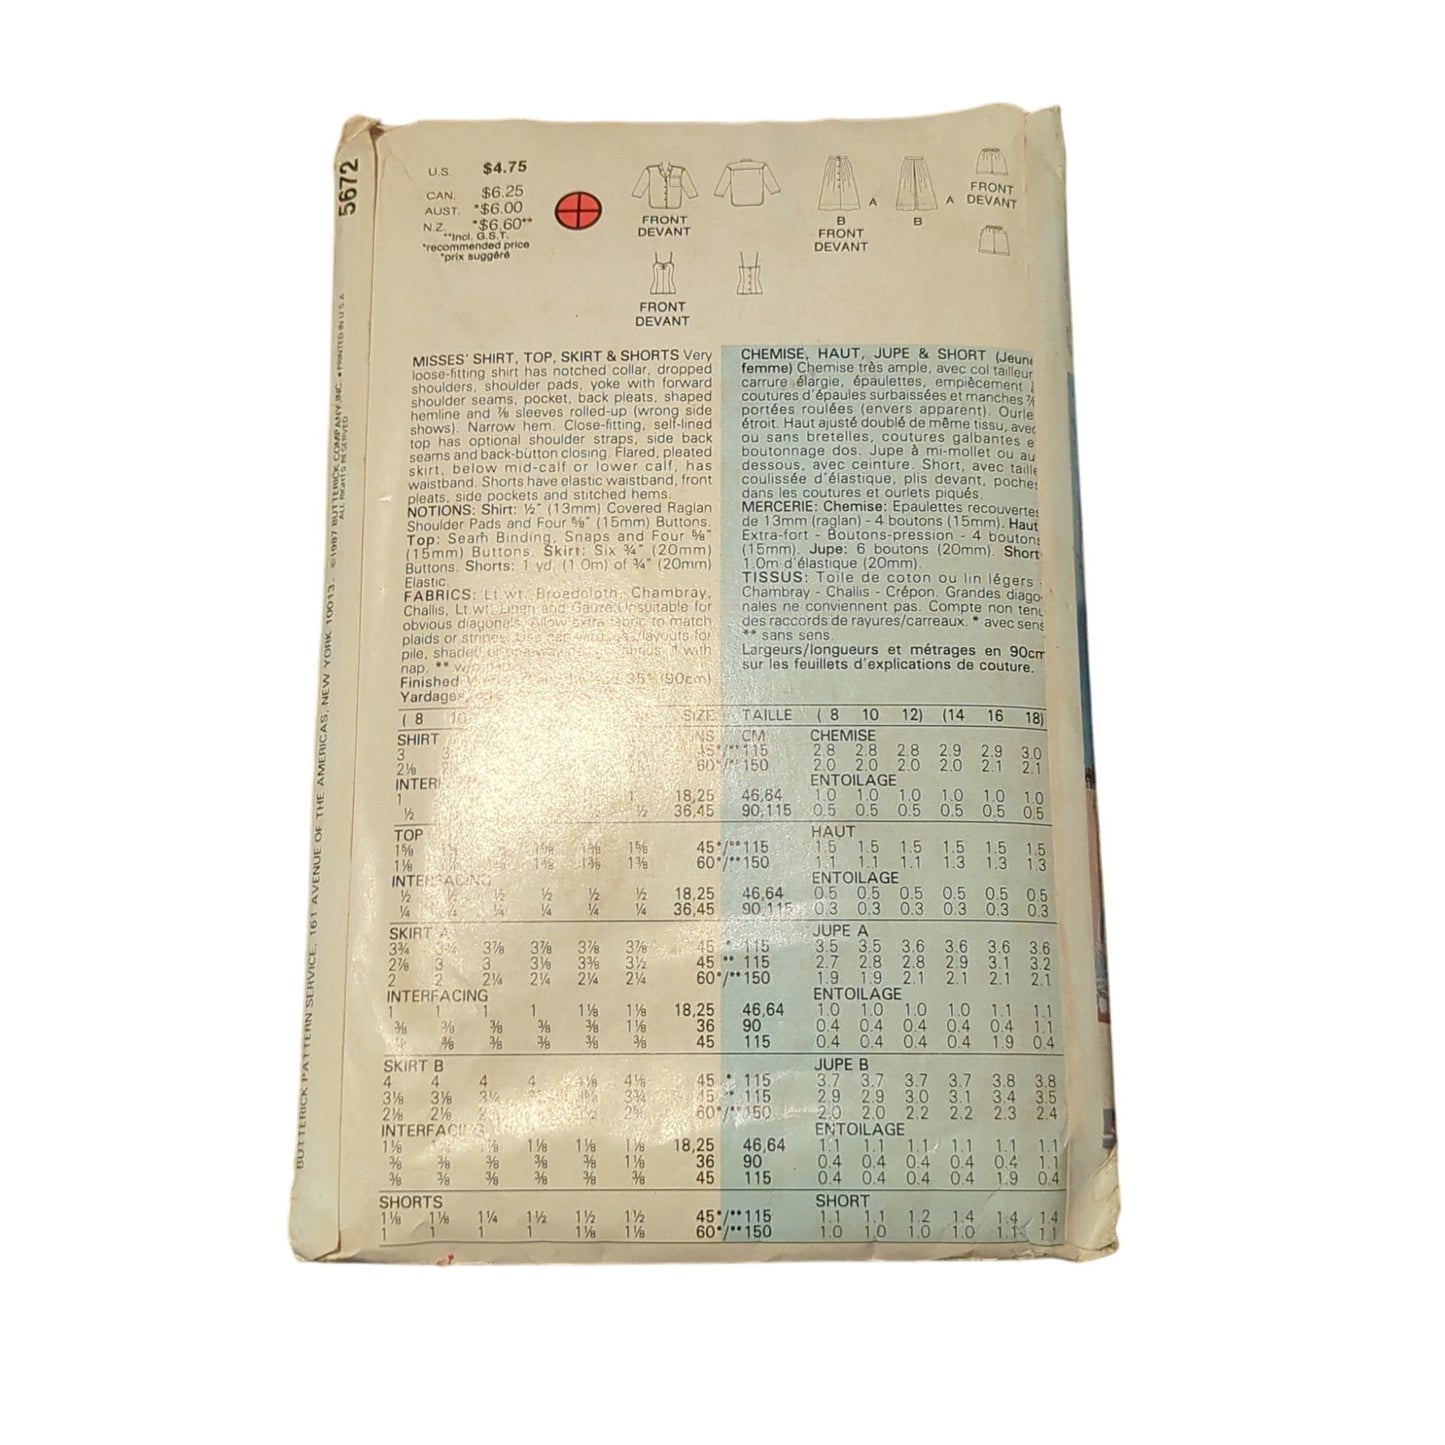 5672
BUTTERICK PATTERN SERVICE, 161 AVENUE OF THE AMERICAS, NEW YORK 10013. ©1987 BUTTERICK COMPANY, INC. ● PRINTED IN U.S.A.
ALL RIGHTS RESERVED
U.S. $4.75
CAN. $6.25
AUST. *$6.00
N.Z. *$6.60**
**Incl. G.S.T.
*recommended price
*prix suggéré
FRONT
DEVANT
A
B
FRONT
DEVANT
A
B
FRONT
DEVANT
FRONT
DEVANT
MISSES' SHIRT, TOP, SKIRT & SHORTS Very
loose-fitting shirt has notched collar, dropped
shoulders, shoulder pads, yoke with forward
shoulder seams, pocket, back pleats, shaped
hemline and ⅞ sleeves rolled-up (wrong side
shows). Narrow hem. Close-fitting, self-lined
top has optional shoulder straps, side back
seams and back-button closing. Flared, pleated
skirt, below mid-calf or lower calf, has
waistband. Shorts have elastic waistband, front
pleats, side pockets and stitched hems.
NOTIONS: Shirt: ½" (13mm) Covered Raglan
Shoulder Pads and Four ⅝" (15mm) Buttons.
Top: Seam Binding, Snaps and Four ⅝"
(15mm) Buttons. Skirt: Six ¾" (20mm)
Buttons. Shorts: 1 yd. (1.0m) of ¾" (20mm)
Elastic.
FABRICS: Lt.wt. Broadcloth, Chambray,
Challis, Lt.wt. Linen and Gauze. Unsuitable for
obvious diagonals. Allow extra fabric to match
plaids or stripes. Use nap yardages/layouts for
pile, shaded or one-way design fabrics. * with
nap. **
Finished 35" (90cm)
Yardages
CHEMISE, HAUT, JUPE & SHORT (Jeune
femme) Chemise très ample, avec col tailleur
carrure élargie, épaulettes, empiècement à
coutures d'épaules surbaissées et manches ⅞
portées roulées (envers apparent). Ourlet
étroit. Haut ajusté doublé de même tissu, avec
ou sans bretelles, coutures galbantes e
boutonnage dos. Jupe à mi-mollet ou au
dessous, avec ceinture. Short, avec taille
coulissée d'élastique, plis devant, poches
dans les coutures et ourlets piqués.
MERCERIE: Chemise: Epaulettes recouvertes
de 13mm (raglan) - 4 boutons (15mm). Haut
Extra-fort - Boutons-pression - 4 boutons
(15mm). Jupe: 6 boutons (20mm). Short
1.0m d'élastique (20mm).
TISSUS: Toile de coton ou lin légers -
Chambray - Challis - Crépon. Grandes diago-
nales ne conviennent pas. Compte non tenu
des raccords de rayures/carreaux. * avec sens
** sans sens.
Largeurs/longueurs et métrages en 90cm
sur les feuillets d'explications de couture.
( 8 10 SIZE TAILLE ( 8 10 12) (14 16 18)
SHIRT CM CHEMISE
3 45*/**115 2.8 2.8 2.8 2.9 2.9 3.0
2⅛ 60*/**150 2.0 2.0 2.0 2.0 2.1 2.1
ENTOILAGE
1 1 18,25 46,64 1.0 1.0 1.0 1.0 1.0 1.0
½ ½ 36,45 90,115 0.5 0.5 0.5 0.5 0.5 0.5
TOP HAUT
1⅝ 1⅝ 1⅝ 1⅝ 45*/**115 1.5 1.5 1.5 1.5 1.5 1.5
1⅛ 1⅜ 1⅜ 1⅜ 60*/**150 1.1 1.1 1.1 1.3 1.3 1.3
INTERFACING ENTOILAGE
½ ½ ½ ½ ½ ½ 18,25 46,64 0.5 0.5 0.5 0.5 0.5 0.5
¼ ¼ ¼ ¼ ¼ ¼ 36,45 90,115 0.3 0.3 0.3 0.3 0.3 0.3
SKIRT A JUPE A
3¾ 3¾ 3⅞ 3⅞ 3⅞ 3⅞ 45 * 115 3.5 3.5 3.6 3.6 3.6 3.6
2⅞ 3 3 3⅛ 3⅜ 3½ 45 ** 115 2.7 2.8 2.8 2.9 3.1 3.2
2 2 2¼ 2¼ 2¼ 2¼ 60*/**150 1.9 1.9 2.1 2.1 2.1 2.1
INTERFACING ENTOILAGE
1 1 1 1 1⅛ 1⅛ 18,25 46,64 1.0 1.0 1.0 1.0 1.1 1.1
⅜ ⅜ ⅜ ⅜ ⅜ 1⅛ 36 90 0.4 0.4 0.4 0.4 0.4 1.1
⅜ ⅜ ⅜ ⅜ ⅜ ⅜ 45 115 0.4 0.4 0.4 0.4 1.9 0.4
SKIRT B JUPE B
4 4 4 4 4⅛ 4⅛ 45 * 115 3.7 3.7 3.7 3.7 3.8 3.8
3⅛ 3⅛ 3¼ 3¾ 45 ** 115 2.9 2.9 3.0 3.1 3.4 3.5
2⅛ 2⅛ 60*/**150 2.0 2.0 2.2 2.2 2.3 2.4
INTERFACING ENTOILAGE
1⅛ 1⅛ 1⅛ 1⅛ 1⅛ 1⅛ 18,25 46,64 1.1 1.1 1.1 1.1 1.1 1.1
⅜ ⅜ ⅜ ⅜ ⅜ 1⅛ 36 90 0.4 0.4 0.4 0.4 0.4 1.1
⅜ ⅜ ⅜ ⅜ ⅜ ⅜ 45 115 0.4 0.4 0.4 0.4 1.9 0.4
SHORTS SHORT
1⅛ 1⅛ 1¼ 1½ 1½ 1½ 45*/**115 1.1 1.1 1.2 1.4 1.4 1.4
1 1 1 1 1⅛ 1⅛ 60*/**150 1.0 1.0 1.0 1.0 1.1 1.1